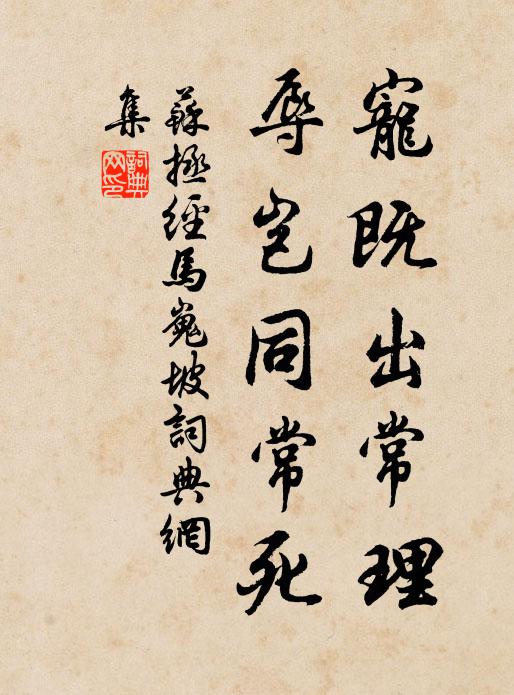 寵既出常理
辱岂同常死
蘇拯經馬嵬坡詞典網
集
詞典
网印